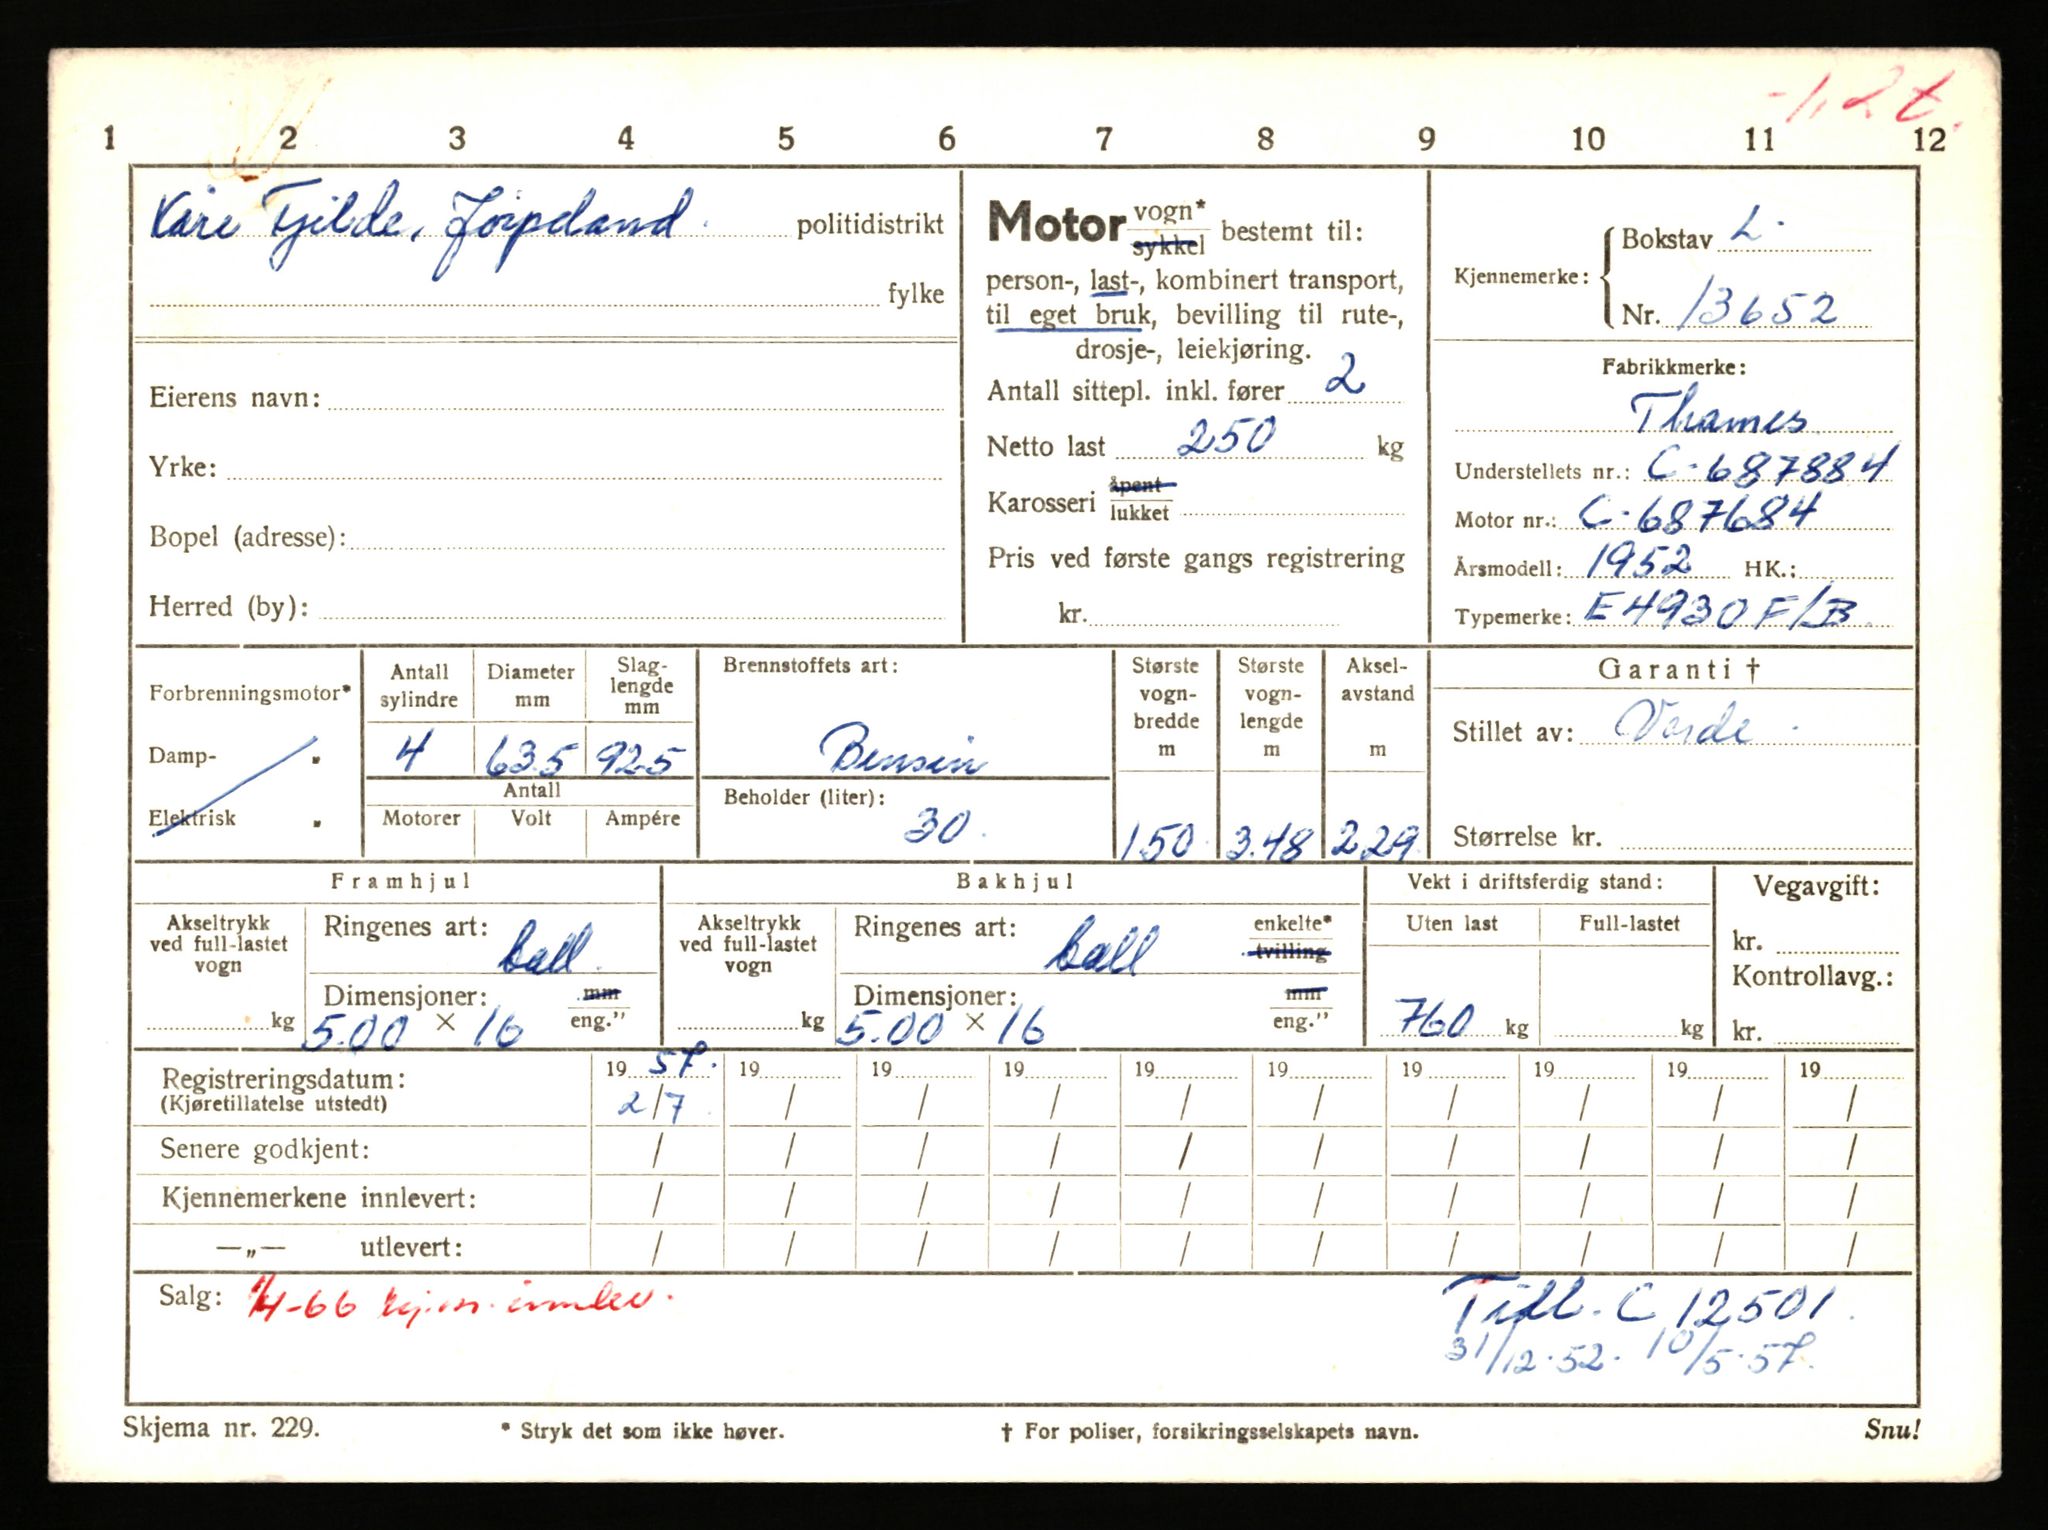 -1,2 t.
1 2 3 4 5 6 7 8 9 10 11 12
Kåre Tjilde, Jørpeland politidistrikt
fylke
Eierens navn:
Yrke:
Bopel (adresse):
Herred (by):
Motor vogn* sykkel bestemt til:
person-, last-, kombinert transport,
til eget bruk, bevilling til rute-,
drosje-, leiekjøring.
Antall sittepl. inkl. fører 2
Netto last 250 kg
Karosseri åpent lukket
Pris ved første gangs registrering
kr.
Kjennemerke: Bokstav L.
Nr. 13652
Fabrikkmerke:
Thames
Understellets nr.: C-687884
Motor nr.: C-687684
Årsmodell: 1952 HK.:
Typemerke: E4930F/B
Forbrenningsmotor*
Damp- "
Elektrisk "
Antall sylindre
Diameter mm
Slaglengde mm
4 63.5 92.5
Antall
Motorer Volt Ampére
Brennstoffets art:
Bensin
Beholder (liter):
30.
Største vognbredde m
150
Største vognlengde m
3.48
Akselavstand m
229
Garanti †
Stillet av: Varde
Størrelse kr.
Framhjul
Akseltrykk ved full-lastet vogn
kg
Ringenes art: ball
Dimensjoner: mm eng."
5.00 × 16
Bakhjul
Akseltrykk ved full-lastet vogn
kg
Ringenes art: ball enkelte* tvilling
Dimensjoner: mm eng."
5.00 × 16
Vekt i driftsferdig stand:
Uten last Full-lastet
760 kg kg
Vegavgift:
kr.
Kontrollavg.:
kr.
Registreringsdatum: 19 57. 19 19 19 19 19 19 19 19 19
(Kjøretillatelse utstedt) 2/7 / / / / / / / / /
Senere godkjent: / / / / / / / / / /
Kjennemerkene innlevert: / / / / / / / / / /
—„— utlevert: / / / / / / / / / /
Salg: 1/4-66 kj.m. innlev.
Tidl. C 12501.
31/12-52. 10/5-57.
Skjema nr. 229. * Stryk det som ikke høver. † For poliser, forsikringsselskapets navn. Snu!